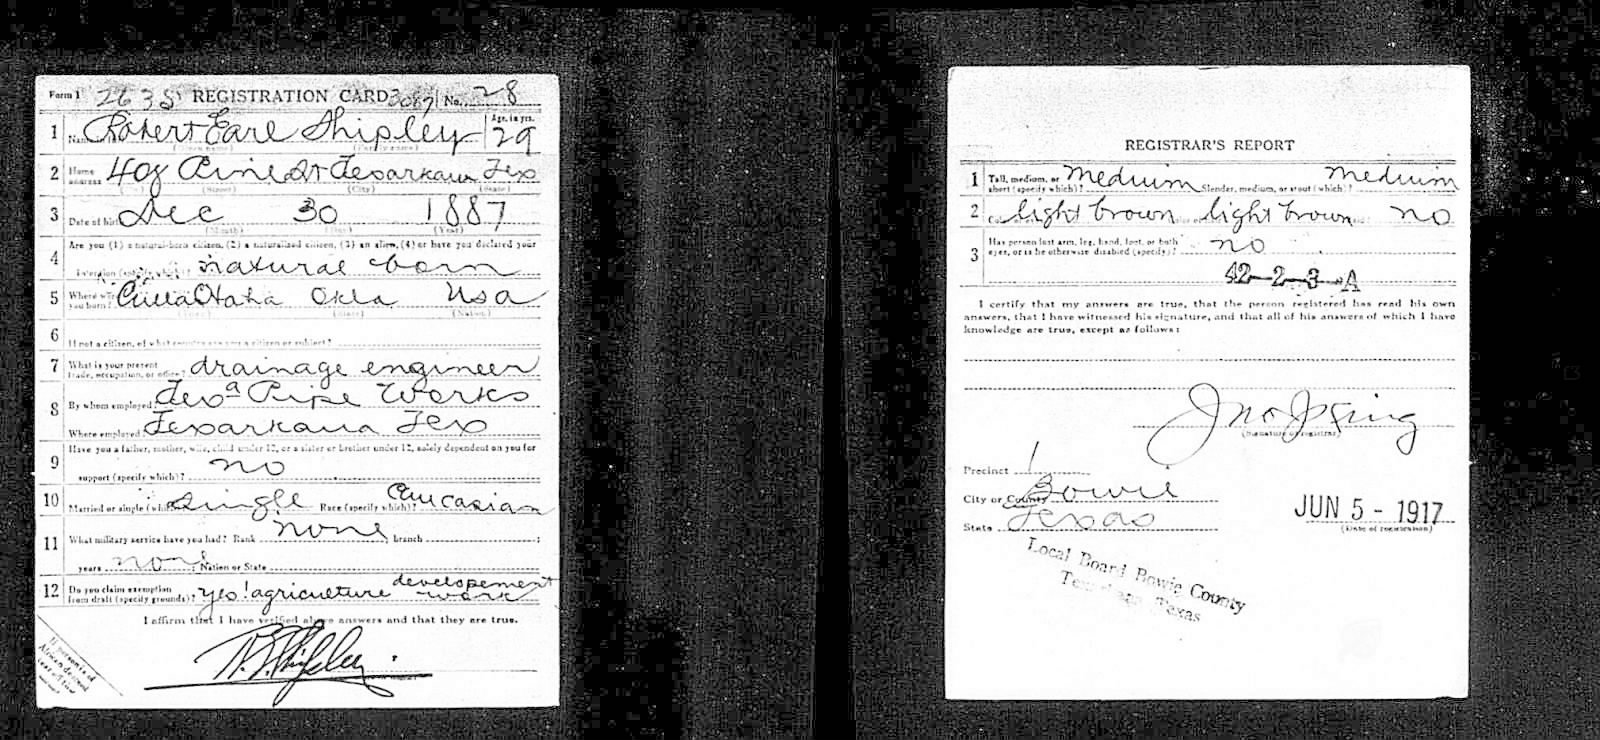 Form 1 2635 REGISTRATION CARD 3087 No. 28
1 Name in full Robert Earl Shipley Age, in yrs. 29
(Given name) (Family name)
2 Home address 408 Pine St Texarkana Tex
(No.) (Street) (City) (State)
3 Date of birth Dec 30 1887
(Month) (Day) (Year)
Are you (1) a natural-born citizen, (2) a naturalized citizen, (3) an alien, (4) or have you declared your
4 intention (specify which)? natural born
5 Where were you born? Okla Usa
(Town) (State) (Nation)
6 If not a citizen, of what country are you a citizen or subject?
7 What is your present trade, occupation, or office? drainage engineer
8 By whom employed Texa Pipe Works
Where employed? Texarkana Tex
9 Have you a father, mother, wife, child under 12, or a sister or brother under 12, solely dependent on you for
support (specify which)? no
10 Married or single (which)? single Race (specify which)? Caucasian
11 What military service have you had? Rank none branch ;
years none Nation or State
12 Do you claim exemption from draft (specify grounds)? yes! agriculture developement work
I affirm that I have verified above answers and that they are true.
R. E. Shipley
If person is of
African descent
tear off this
corner
REGISTRAR'S REPORT
1 Tall, medium, or short (specify which)? medium Slender, medium, or stout (which)? medium
2 light brown light brown no
3 Has person lost arm, leg, hand, foot, or both eyes, or is he otherwise disabled (specify)? no
42-2-3-A
I certify that my answers are true, that the person registered has read his own
answers, that I have witnessed his signature, and that all of his answers of which I have
knowledge are true, except as follows:
Jno J King
(Signature of registrar)
Precinct 1
City or County Bowie
State Texas
JUN 5 - 1917
(Date of registration)
Local Board Bowie County
Texarkana Texas